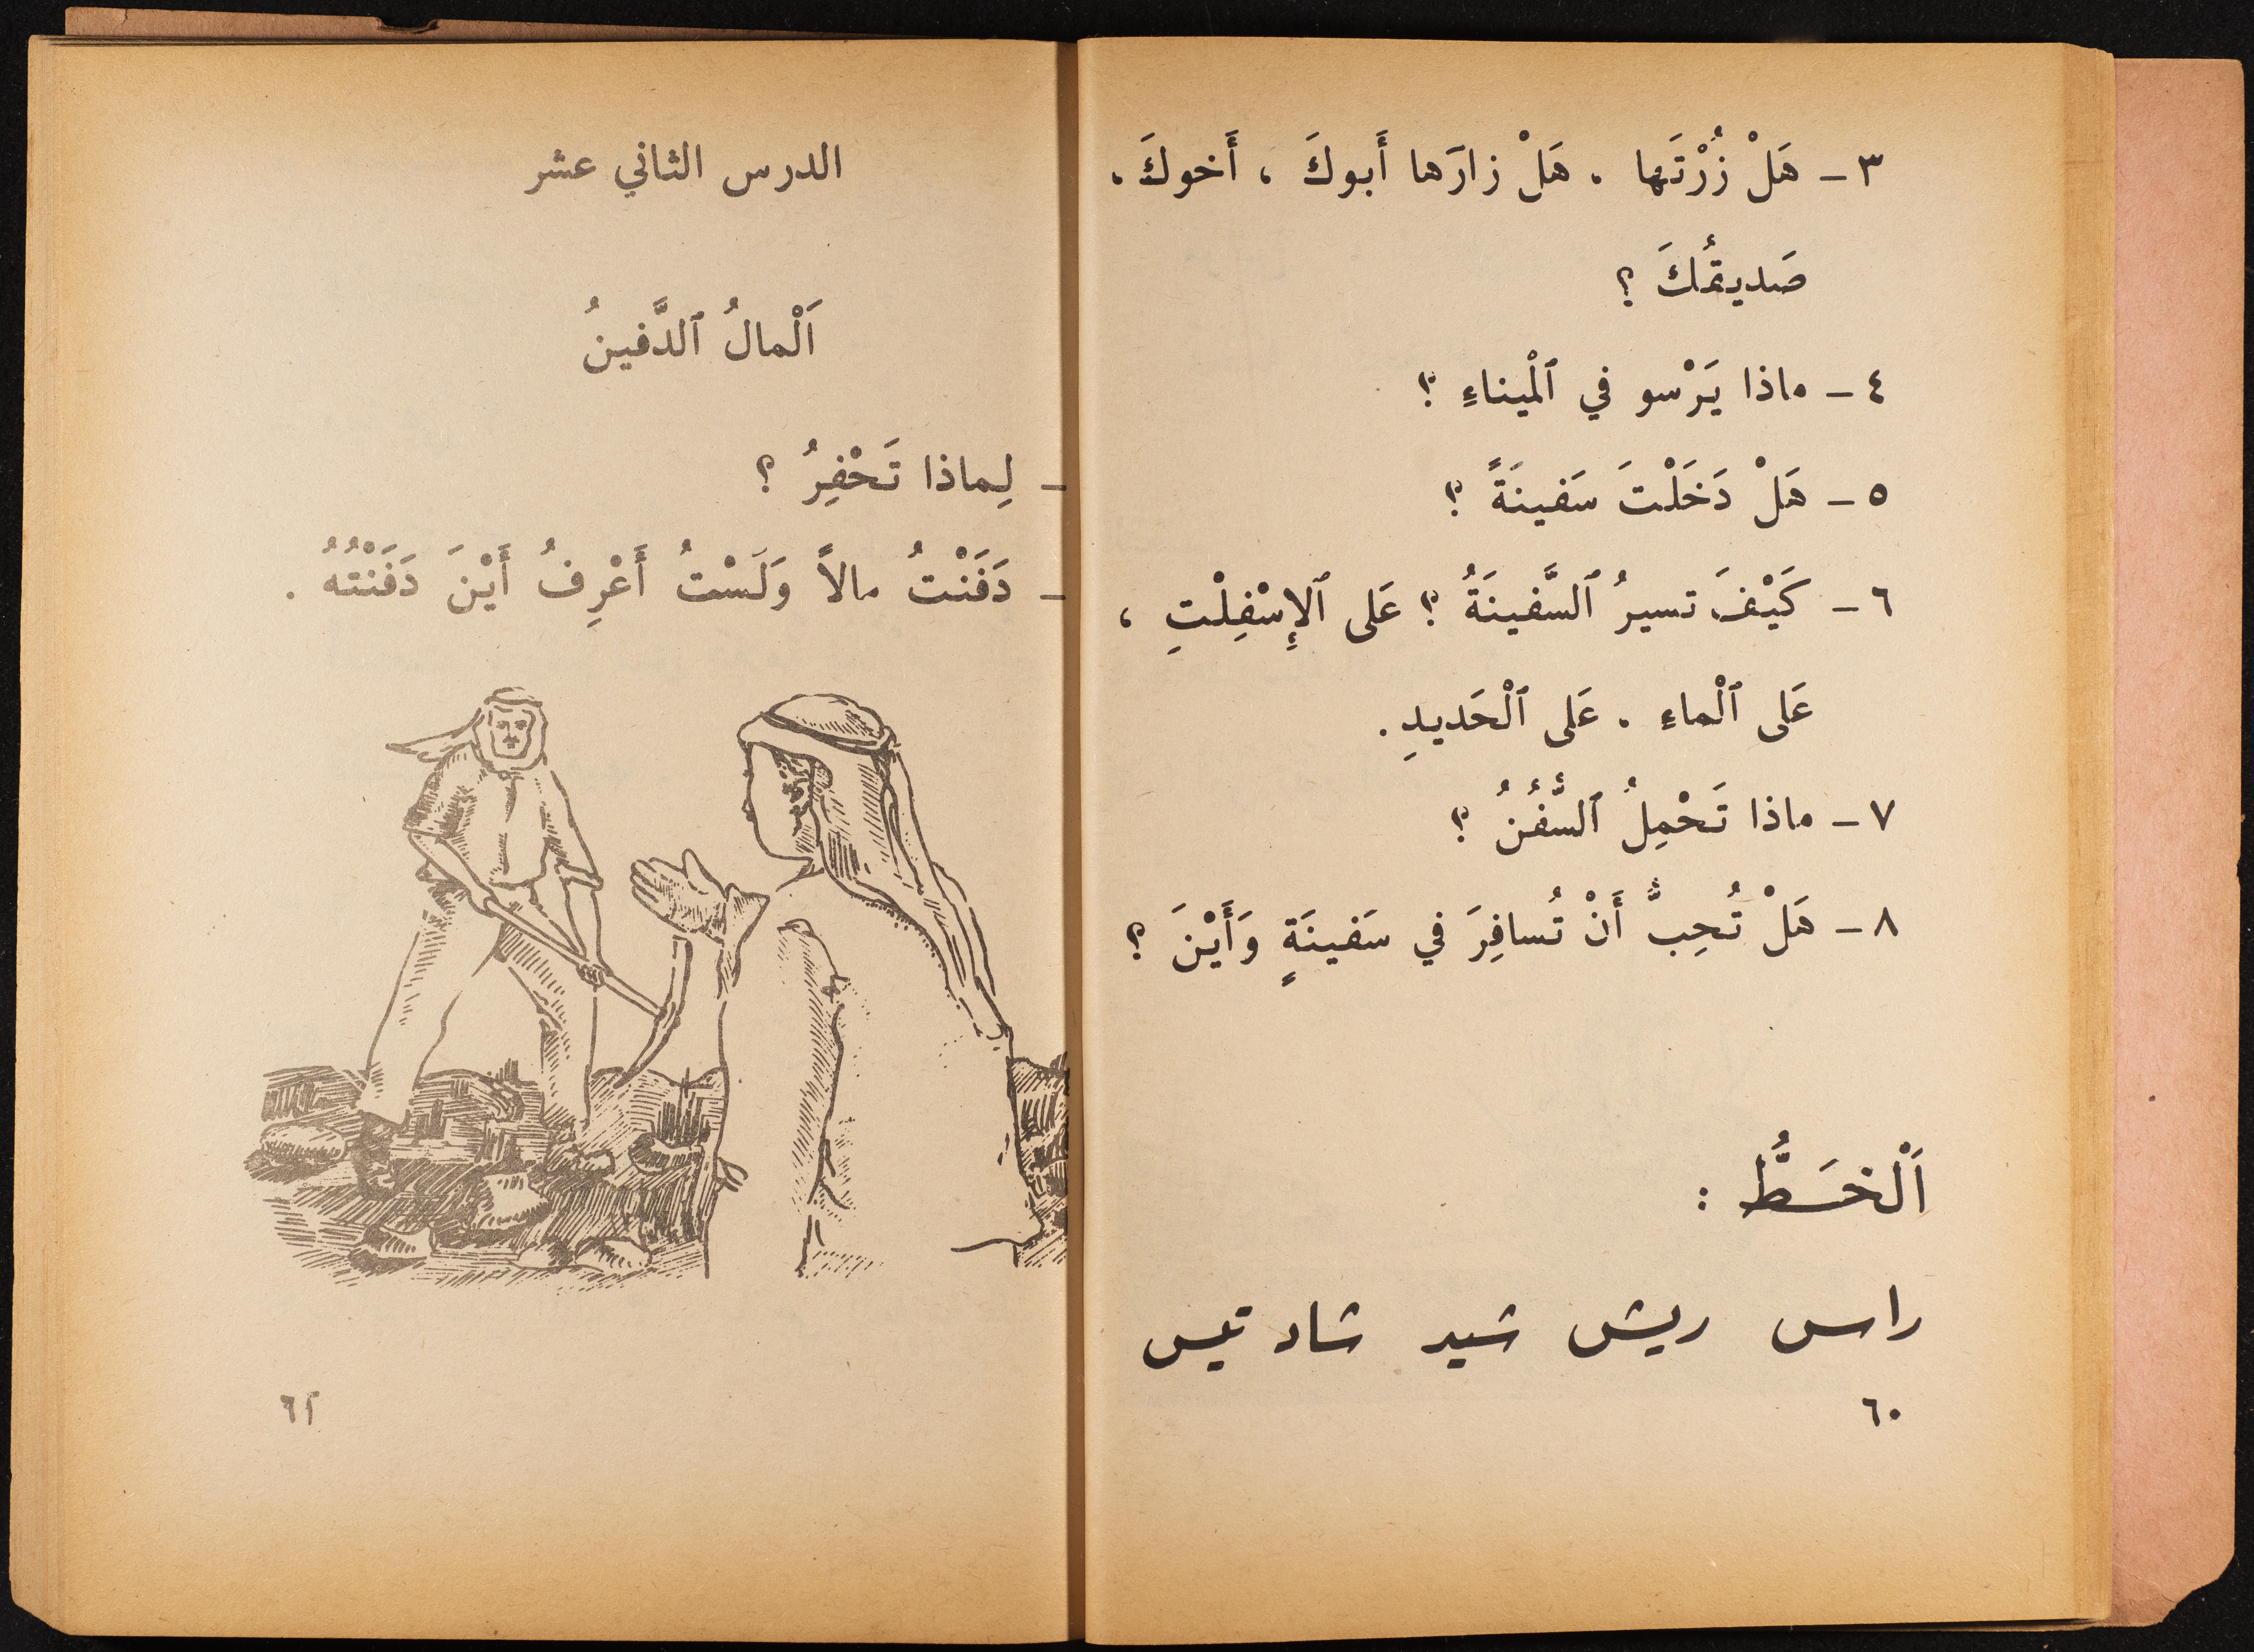 ٣ – هَلْ زُرْتَها . هَلْ زارَها أَبوكَ ، أَخوكَ .
صَديقُكَ ؟
٤ – ماذا يَرْسو في ٱلْميناءِ ؟
٥ – هَلْ دَخَلْتَ سَفينَةً ؟
٦ – كَيْفَ تسيرُ ٱلسَّفينَةُ ؟ عَلى ٱلإِسْفِلْتِ ،
عَلى ٱلْماءِ . عَلى ٱلْحَديدِ .
٧ – ماذا تَحْمِلُ ٱلسُّفُنُ ؟
٨ – هَلْ تُحِبُّ أَنْ تُسافِرَ في سَفينَةٍ وَأَيْنَ ؟
اَلْخَطُّ :
راس ريش شيد شاد تيس
٦٠
الدرس الثاني عشر
اَلْمالُ ٱلدَّفينُ
– لِماذا تَحْفِرُ ؟
– دَفَنْتُ مالاً وَلَسْتُ أَعْرِفُ أَيْنَ دَفَنْتُهُ .
٦١